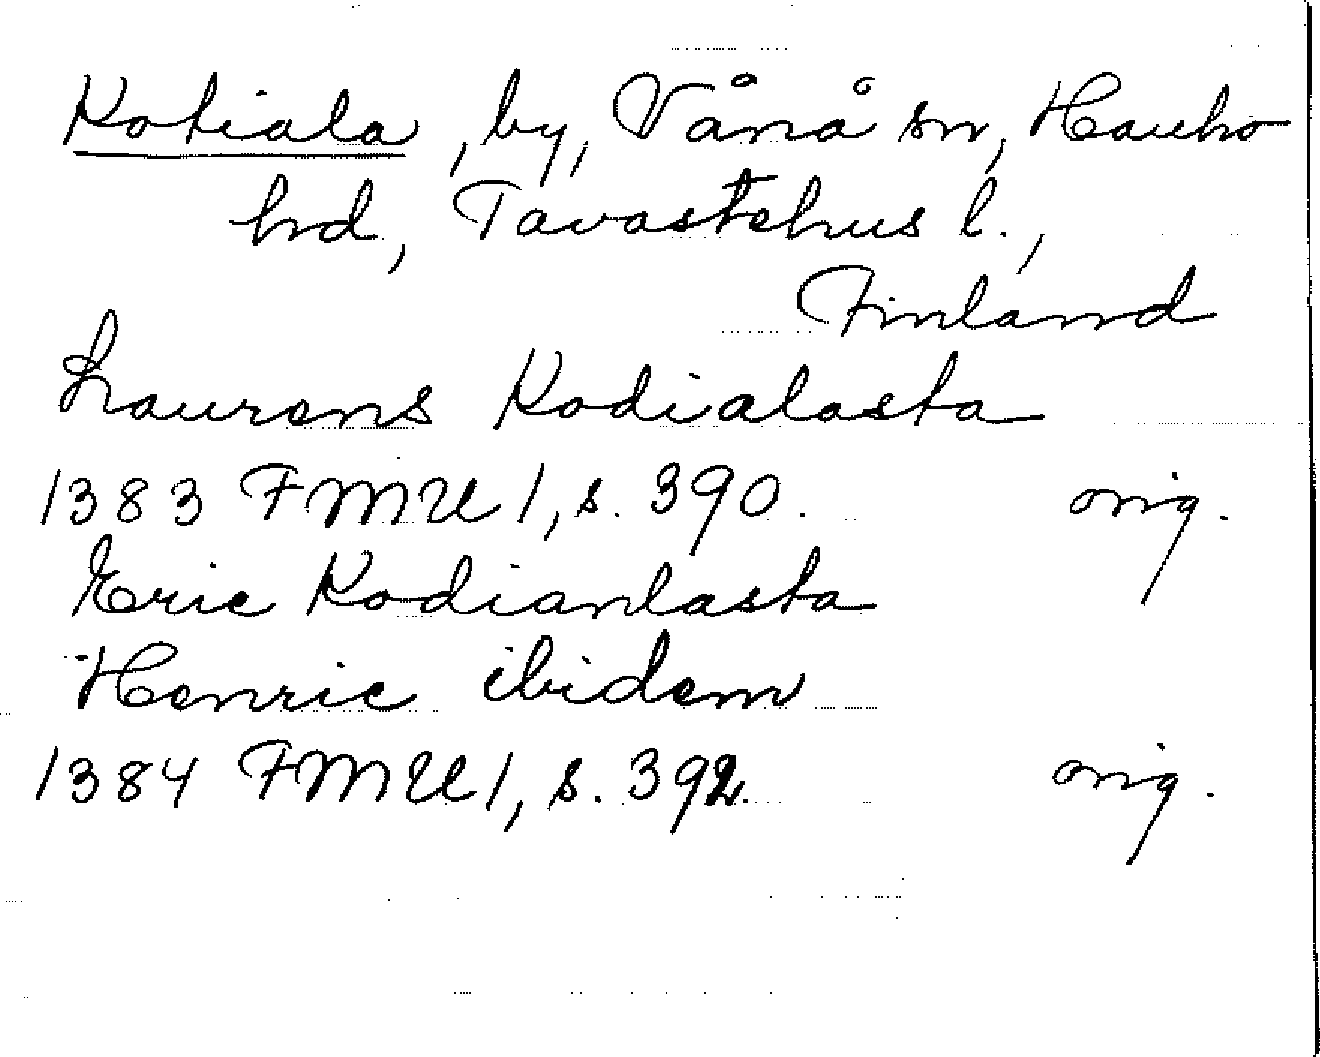 Kotiala, by, Vånå sn, Hauho
hd, Tavastehus l.,
Finland
Laurens Kodialasta
1383 FMU 1, s. 390. orig.
Eric Kodianlasta
Henric ibidem
1384 FMU 1, s. 392. orig.